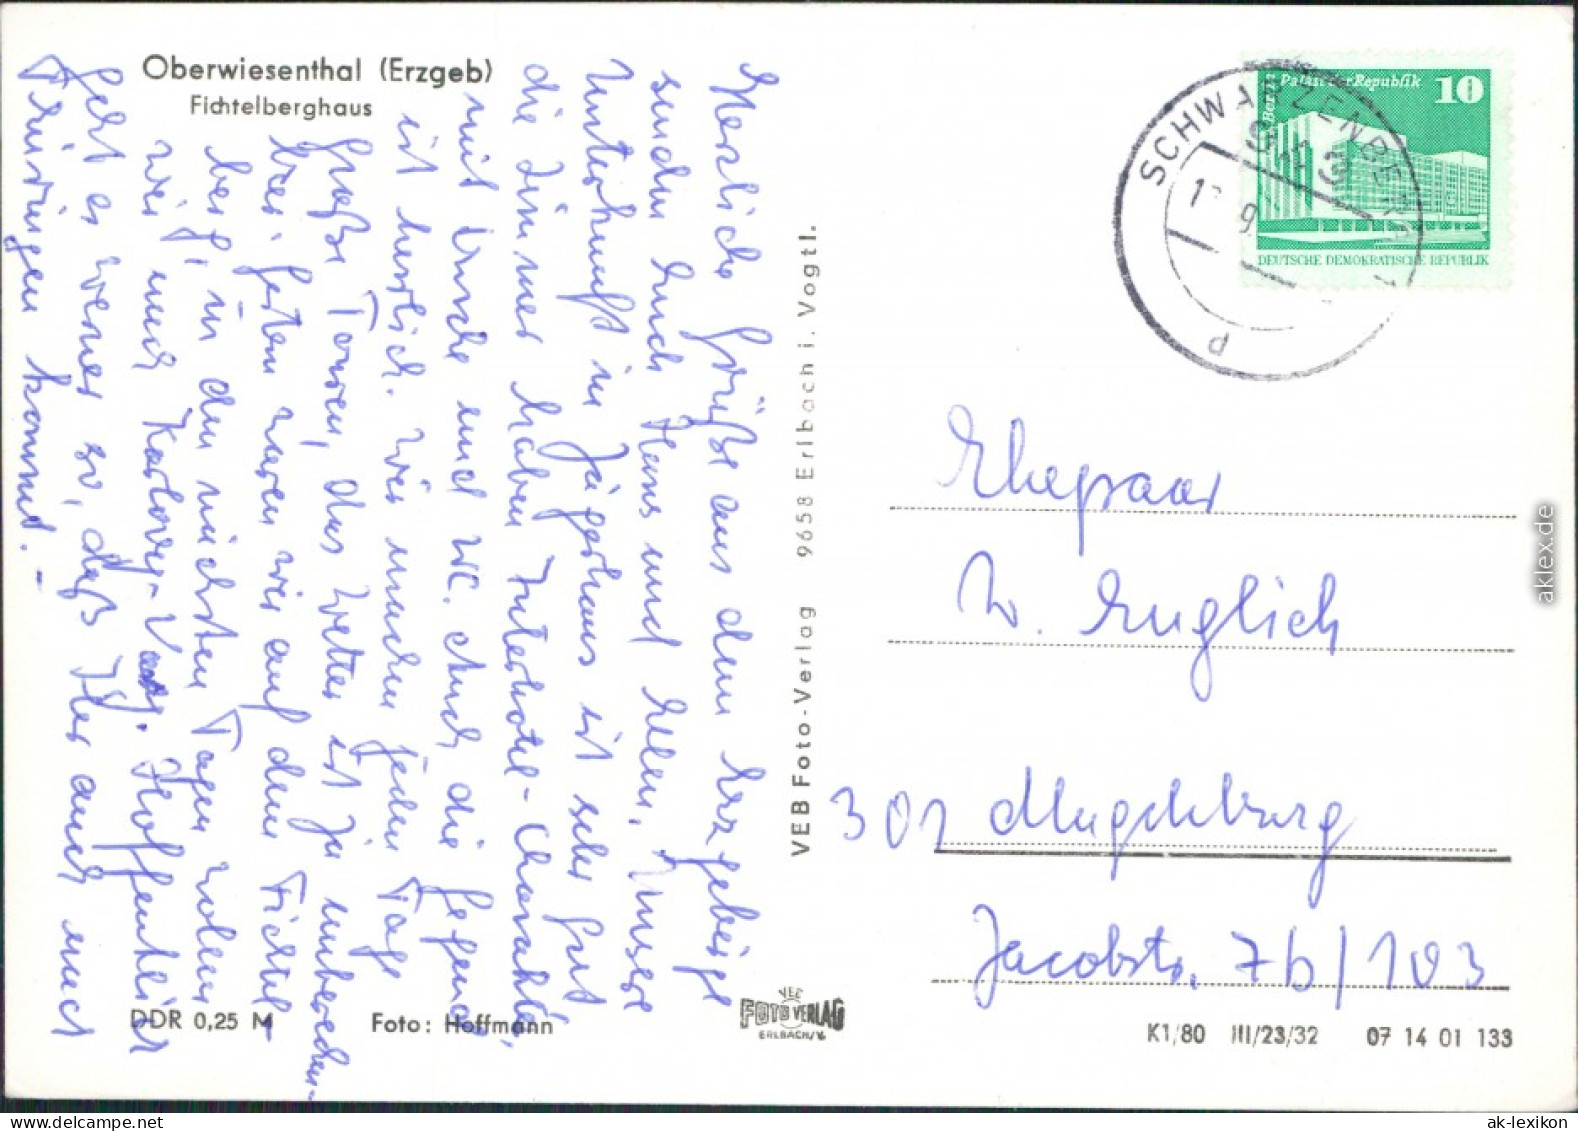 Oberwiesenthal (Erzgeb)
Fichtelberghaus
Herzliche Grüße aus dem Erzgebirge
senden Euch Hans und Ellen. Unsere
Unterkunft im Jägerhaus ist sehr gut
die Zimmer haben Interhotel-Charakter,
mit Dusche und WC. Auch die Gegend
ist herrlich. Wir machen jeden Tage
große Touren, das Wetter ist ja
bei. Gestern waren wir auf dem Fichtel-
berg, in den nächsten Tagen wollen
wir nach Karlovy-Vary. Hoffentlich
geht es Werner so, daß Ihr auch nach
Thüringen kommt. -
VEB Foto-Verlag 9658 Erlbach i. Vogtl.
DDR 0,25 M
Foto: Hoffmann
VEB
FOTO VERLAG
ERLBACH/V.
Berlin Palast der Republik 10
DEUTSCHE DEMOKRATISCHE REPUBLIK
SCHWARZENBERG
Ehepaar
W. Englich
301 Magdeburg
Jacobstr. 7b/103
K1/80 III/23/32 07 14 01 133
aklex.de
ak-lexikon